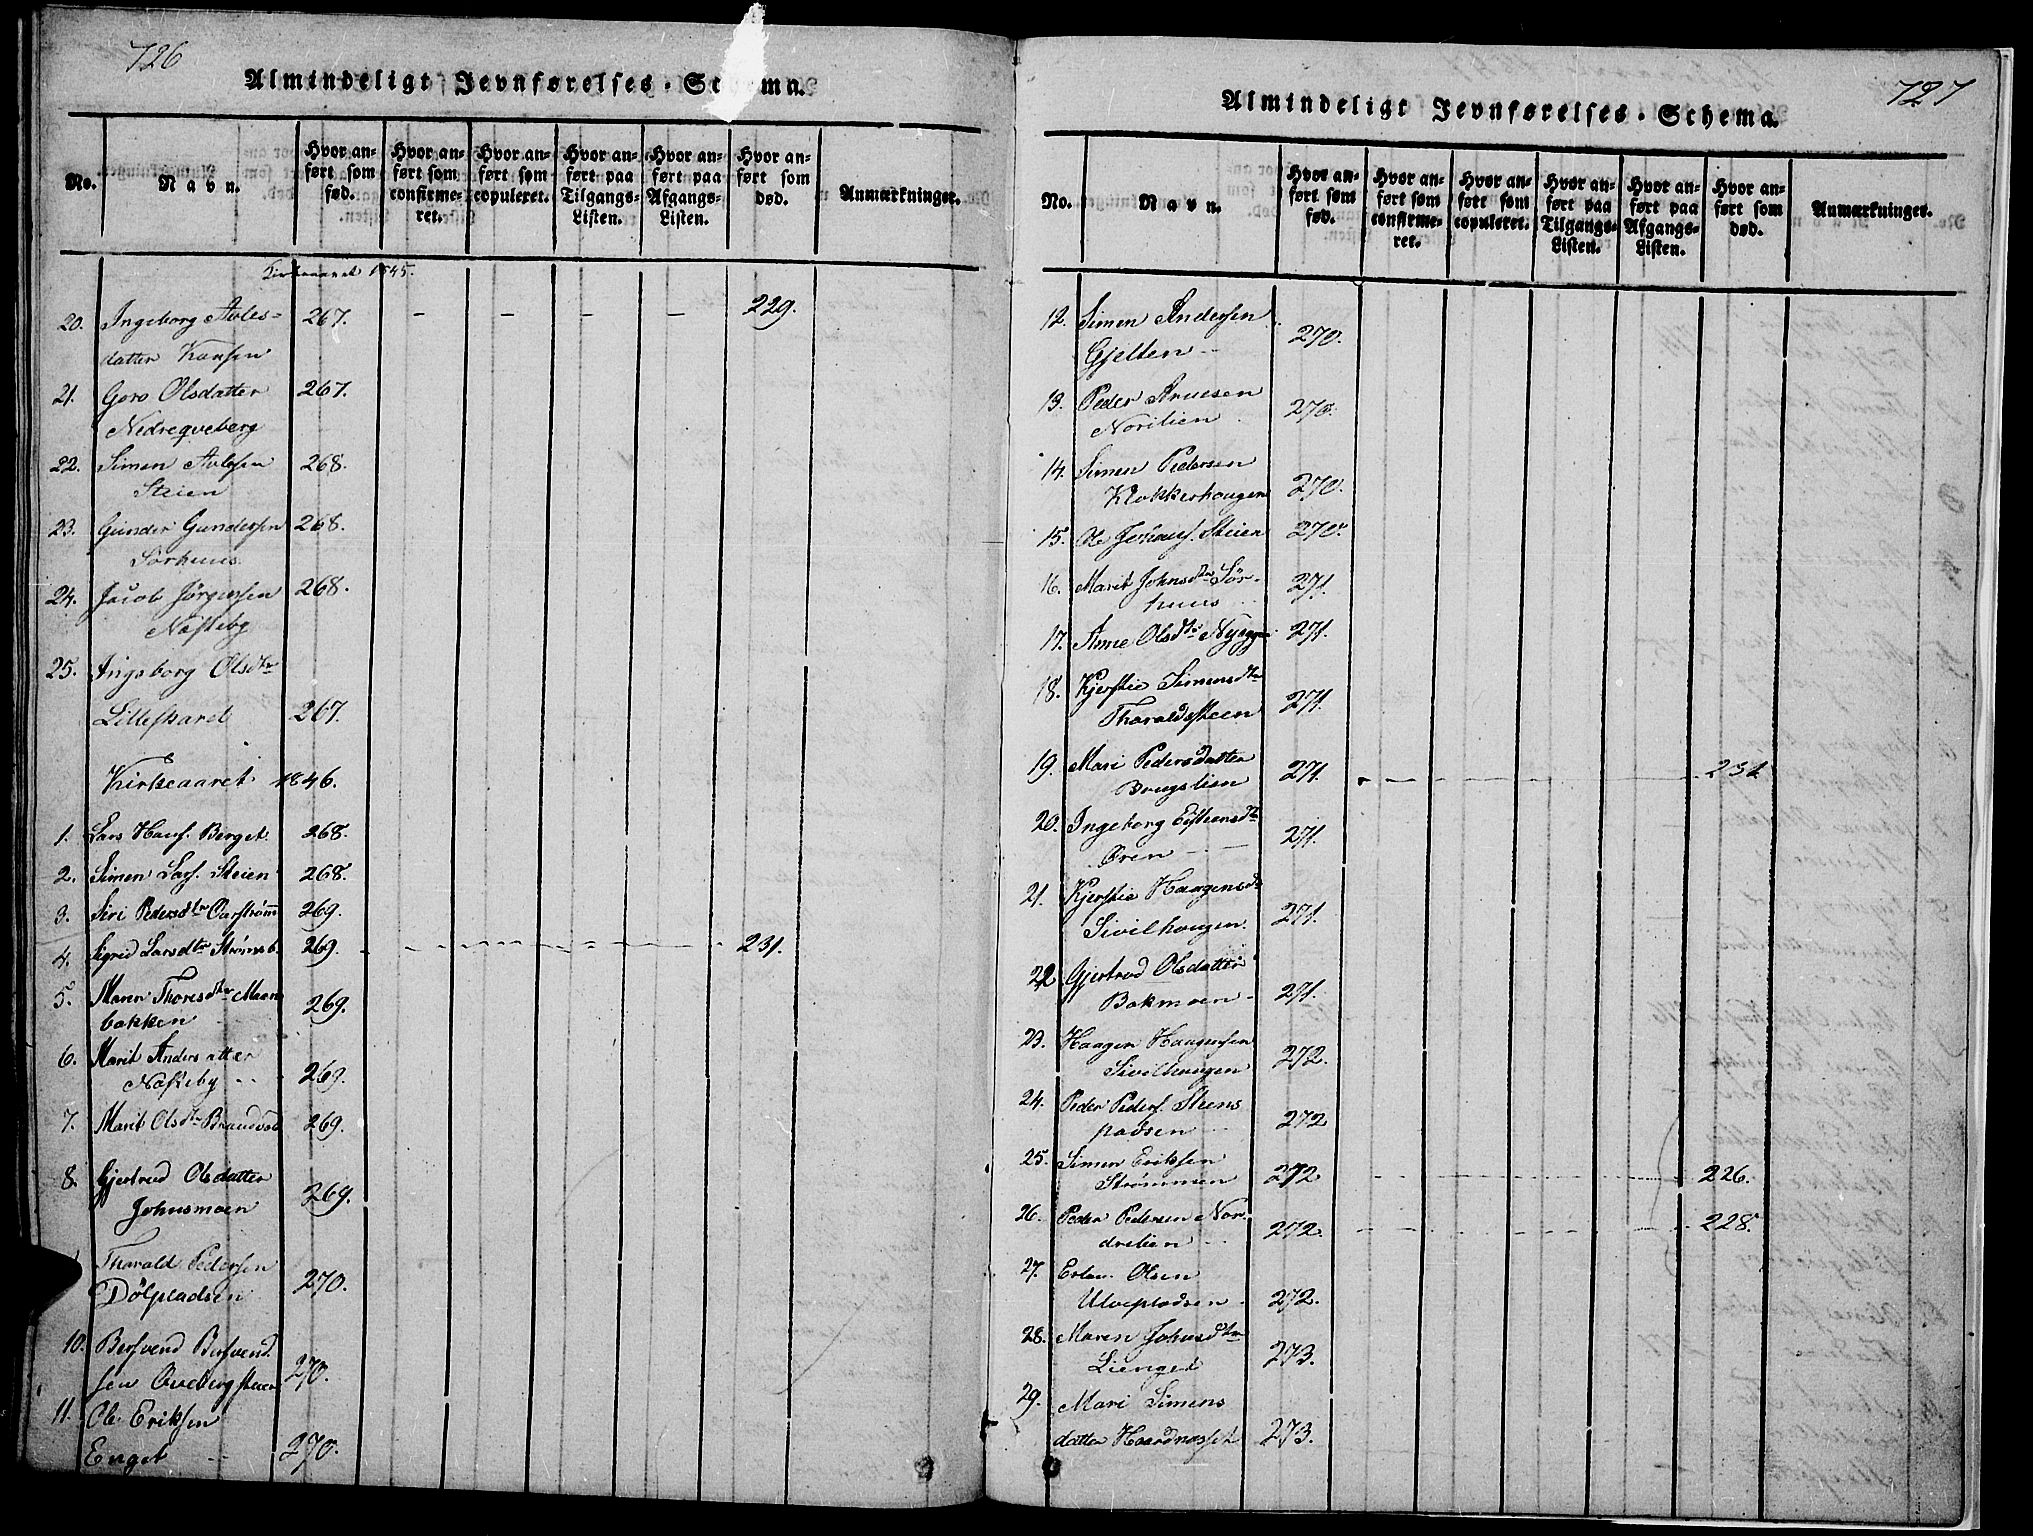 726
Almindeligt Jevnførelses-Schema.
No.
Navn.
Hvor anført som fød.
Hvor anført som confirmeret.
Hvor anført som copuleret.
Hvor anført paa Tilgangs-Listen.
Hvor anført paa Afgangs-Listen.
Hvor anført som død.
Anmærkninger.
Kirkeaaret 1845.
20. Ingeborg Avles= 267. - - - - 229.
datter Kausen
21. Goro Olsdatter 267.
Nedreqveberg
22. Simen Avlesen 268.
Steien
23. Gunder Gundersen 268.
Sörhuus
24. Jacob Jörgensen 268.
Nafteby
25. Ingeborg Olsdtr
Lilleskaret 267.
Kirkeaaret 1846.
1. Lars Hans. Berget 268.
2. Simen Lars. Steien 268.
3. Siri Pedersdtr 269.
4. Sigrid Larsdtr Strömsb. 269. - - - - 231.
5. Maren Thoresdtr Moan
bakken 269.
6. Marit Anders atter
Nafteby 269.
7. Marit Olsdtr Brandvol 269.
8. Gjertrud Olsdatter
Johnsmoen 269.
Tharald Pedersen
Dölpladsen 270.
10. Bersvend Bersvend
sen 270.
11. Ole Eriksen
Enget 270.
727
Almindeligt Jevnførelses-Schema.
No.
Navn.
Hvor anført som fød.
Hvor anført som confirmeret.
Hvor anført som copuleret.
Hvor anført paa Tilgangs-Listen.
Hvor anført paa Afgangs-Listen.
Hvor anført som død.
Anmærkninger.
12. Simen Andersen
Gjelten 270.
13. Peder Arnesen
Norilien 270.
14. Simen Pedersen
Klokkerhaugen 270.
15. Ole Johans. Steien 270.
16. Marit Johnsdtr Sör-
huus 271.
17. Anne Olsdtr 271.
18. Kjerstie Simensdtr
Tharaldsteen 271.
19. Mari Pedersdatter
Bougslien 271. - - - - 231
20. Ingeborg Estensdtr
Ören 271.
21. Kjerstie Haagensdr
Sivilhaugen. 271.
22 Gjertrud Olsdatter
Bakmoen 271.
23. Haagen Haagensen
Sivilhaugen 272.
24. Peder Peders. Steens
pladsen 272
25. Simen Eriksen
Strömmen 272 - - - - 226.
26. Peder Pedersen Nor-
drelien 272. - - - - 228.
27. Olsen
Ulvepladsen 272.
28. Maren Johnsdtr
Lienget 273.
29. Mari Simens
datter 273.